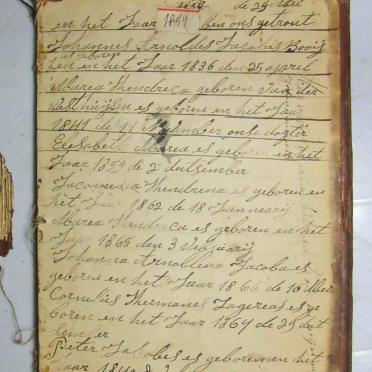 1859 de 29
en het Jaar 1859 ben ons getrout
Johannes Arnoldes Jacobes Booi
geboren
en en het Jaar 1836 den 25 april
Marea Hendreca geboren van der
Westhuijsen es geboren en het Jaar
1841 de 11 November onse dogter
Elesabeth Marea es geboren en het
Jaar 1859 de 2 deitsember
Jacomena Hendrena es geboren en
het Jaar 1862 de 18 Jannearij
Marea Hendreca es geboren en het
Jaar 1865 den 3
Johanna Arnolldena Jacoba es
geboren en het Jaar 1866 de 16
Cornelies Hermanes Zagereas es ge
boren en het Jaar 1869 de 25 deit
sember
Pieter Jacobes es geboren en het
Jaar